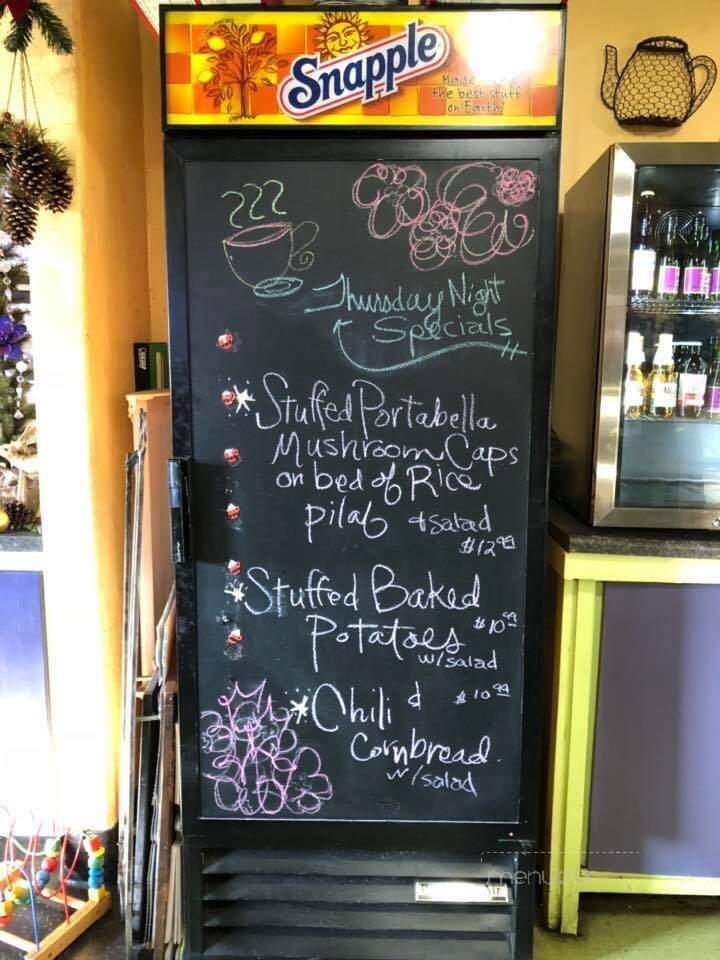 Snapple
Made from
the best stuff
on Earth.
Thursday Night
Specials
Stuffed Portabella
Mushroom Caps
on bed of Rice
pilaf & Salad
$12.99
Stuffed Baked
Potatoes $10.99
w/salad
Chili & $10.99
Cornbread
w/salad